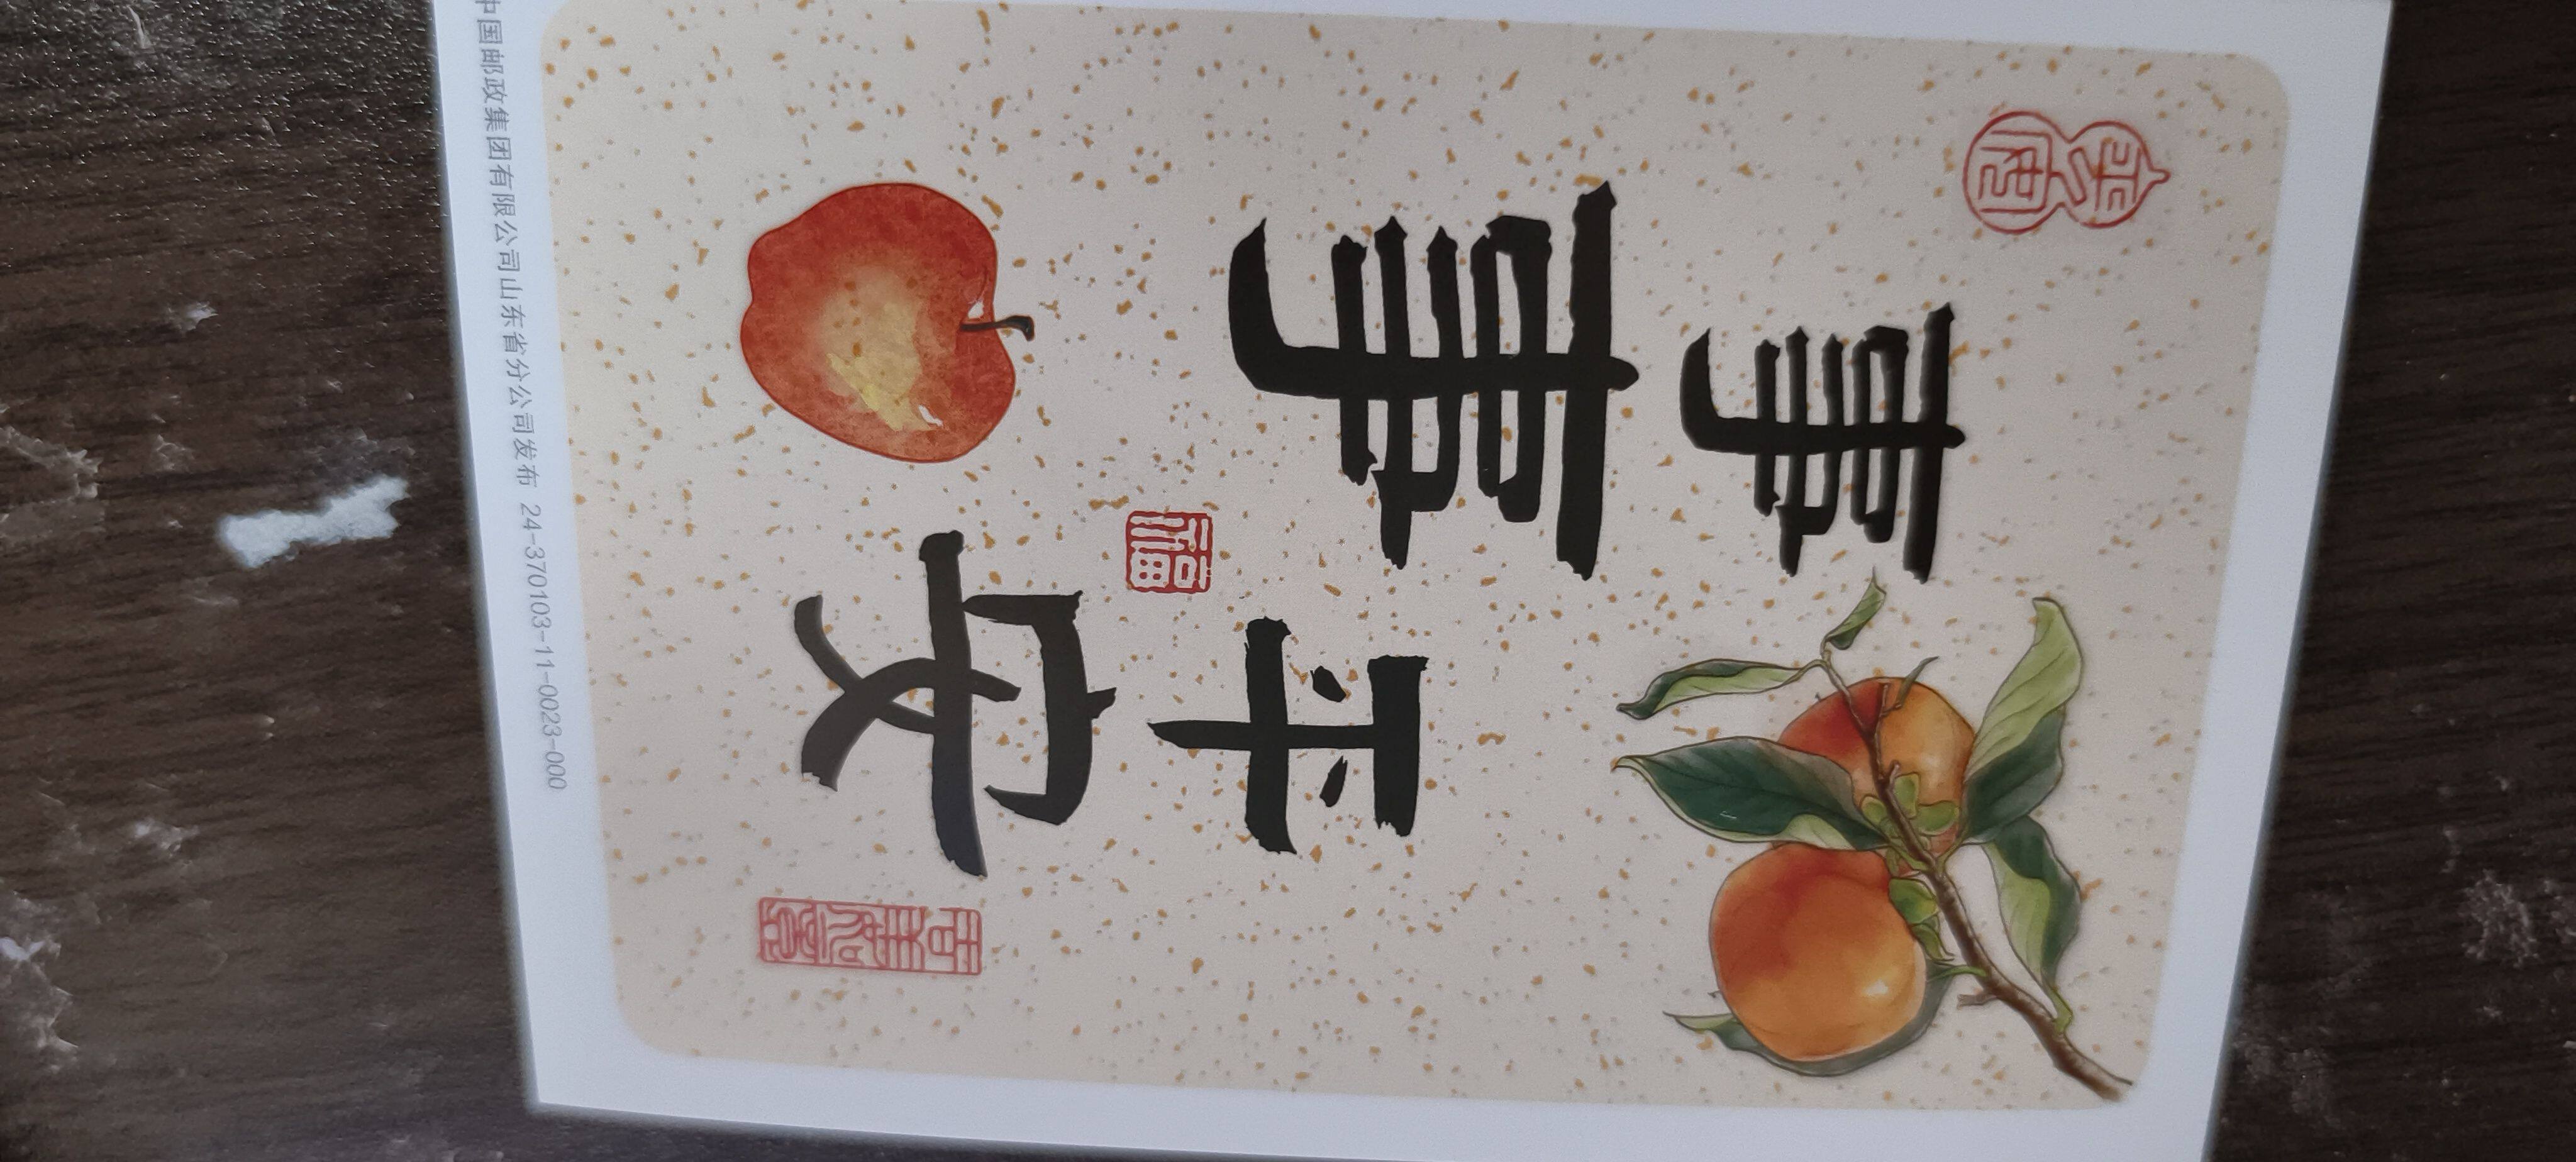 事事
平安
福
中国邮政集团有限公司山东省分公司发布 24-370103-11-0023-000